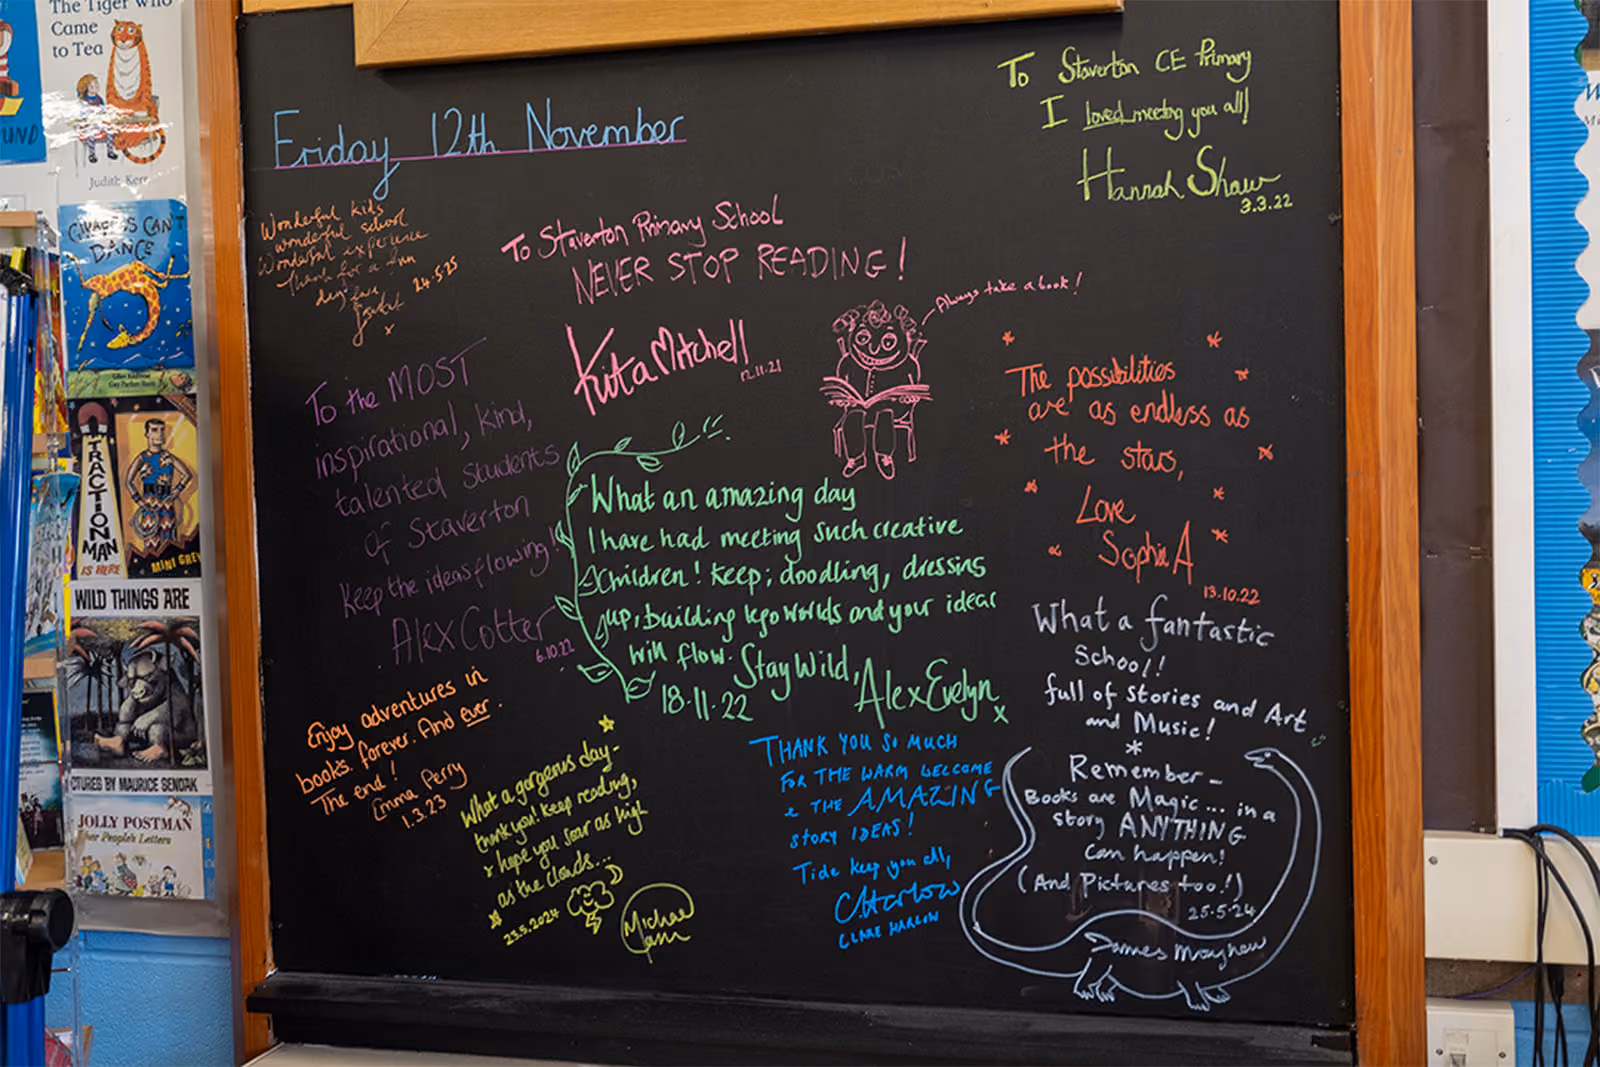 The Tiger Who
Came
to Tea
Judith Kerr
GIRAFFES CAN'T
DANCE
Giles Andreae
Guy Parker-Rees
TRACTION
MAN
IS HERE
MINI GREY
WILD THINGS ARE
PICTURES BY MAURICE SENDAK
JOLLY POSTMAN
Other People's Letters
Friday 12th November
Wonderful kids
wonderful school
Wonderful experience
Thanks for a fun
day
24.5.25
x
To Staverton Primary School
NEVER STOP READING!
Kita Mitchell
12.11.21
Always take a book!
To Staverton CE Primary
I loved meeting you all!
Hannah Shaw
3.3.22
To the MOST
inspirational, kind,
talented students
of Staverton
Keep the ideas flowing!
Alex Cotter
6.10.22
What an amazing day
I have had meeting such creative
Children! Keep; doodling, dressing
up, building lego worlds and your ideas
will flow. Stay Wild,
18.11.22
Alex Evelyn
x
The possibilities
are as endless as
the stars,
Love
Sophie A
13.10.22
Enjoy adventures in
books. forever. And ever.
The end!
Emma Perry
1.3.23
What a gorgeous day-
thank you! Keep reading,
& hope you soar as high
as the clouds...
23.5.2024
THANK YOU SO MUCH
FOR THE WARM WELCOME
& THE AMAZING
STORY IDEAS!
Tide keep you all,
C Harlow
CLARE HARLOW
What a fantastic
School!
full of stories and Art
and Music!
*
Remember -
Books are Magic... in a
story ANYTHING
can happen!
(And Pictures too!)
25.5.24
James Mayhew